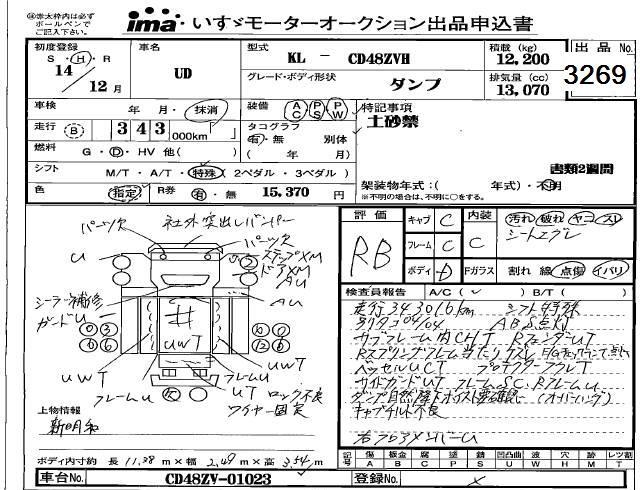 ※赤太枠内は必ず
ボールペンで
ご記入下さい。
ima いすゞモーターオークション出品申込書
初度登録 車名 型式 積載 (kg) 出品 No.
S・H・R UD KL - CD48ZVH 12,200
14 / 12月 グレード・ボディ形状 ダンプ 排気量 (cc) 13,070 3269
車検 年 月・抹消 装備 AC PS PW 特記事項
土砂禁
走行 (B) 343 000km タコグラフ 有・無 別体
燃料 G・D・HV 他( ) ( 年 月)
シフト M/T・A/T・特殊 (2ペダル・3ペダル) 書類2週間
色 指定 R券 有・無 15,370 円 架装物年式:( 年式)・不明
※不明の場合は、不明に○をする。
パーツ欠 社外突出しバンパー
パーツ欠
ステップXM
ドアXM
U AU
AU
シーラー補修
ガードU
UWT
UWT UWT
フレームU フレームU
UT ロック不良
ワイヤー固定
上物情報
新明和
ボディ内寸約 長 11.38 m×幅 2.49 m×高 3.54 m
評価 RB
キャブ C 内装 C 汚れ 破れ ヤコゲ スレ
シートコゲ
フレーム C
ボディ D Fガラス 割れ 線 点傷 イバリ
検査員報告 A/C( ✓ ) B/T( )
走行343016km シフト特殊
ABS点灯
サブフレーム内CHT RフェンダーUT
ベッセルUCT
サイドガードUT フレームSC.RフレームU
キャブチルト不良
右フロアメンバーU
記号 傷 板金 腐 塗 錆 補修 欠品 要交換 凹凸曲 波 穴 跡 レツ割
A B C P S U W H M T
車台No. CD48ZV-01023 登録No. ×